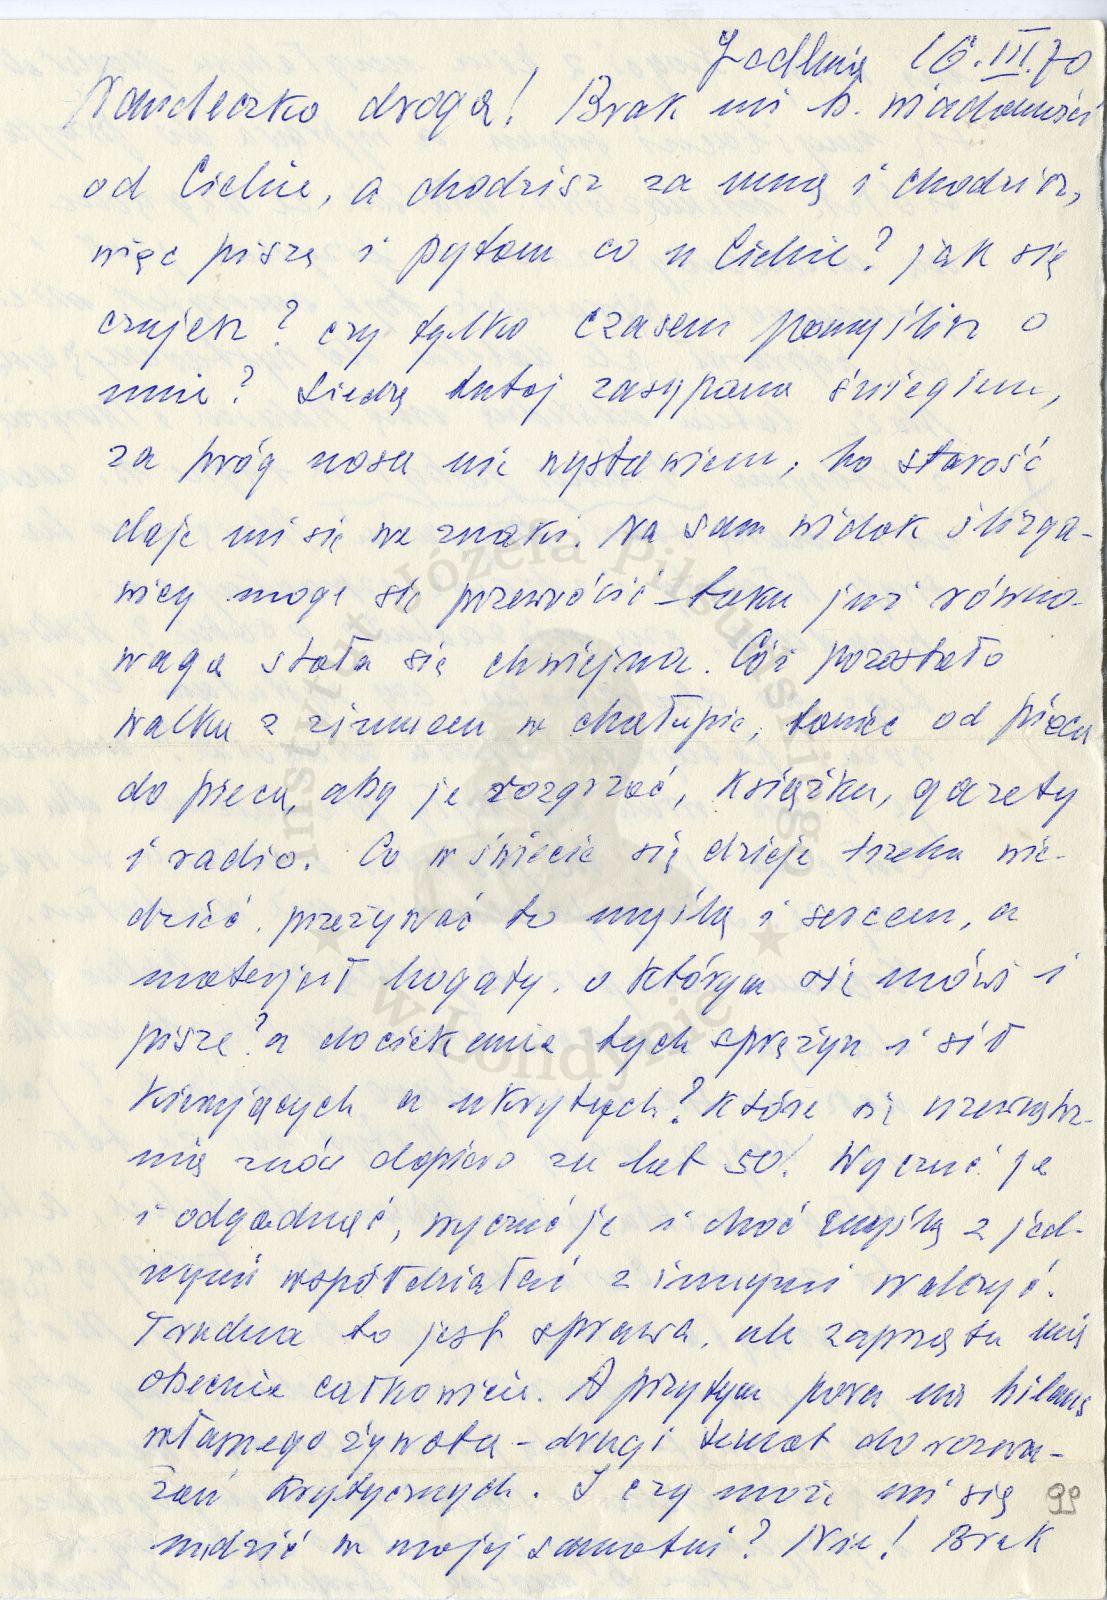 Jedlnia 16.III.70
Wandeczko droga! Brak mi b. wiadomości
od Ciebie, a chodzisz za mną i chodzisz,
więc piszę i pytam co u Ciebie? jak się
czujesz? czy tylko czasem pomyślisz o
mnie? Siedzę tutaj zasypana śniegiem,
za próg nosa nie wystawiam, bo starość
daje mi się we znaki. Na sam widok ślizga-
wicy mogę się przewrócić – taka już równo-
waga stała się chwiejna. Cóż pozostało
walka z zimnem w chałupie, taniec od pieca
do pieca, aby je rozgrzać, książka, gazety
i radio. Co w świecie się dzieje trzeba wie-
dzieć, przeżywać to myślą i sercem, a
materjał bogaty, o którym się mówi i
pisze? a dociekanie tych sprężyn i sił
kierujących a ukrytych? które się uzewnętrz-
nią znów dopiero za lat 50! Wyczuć je
i odgadnąć, wyczuć je i choć myślą z jed-
nymi współdziałać z innymi walczyć.
Trudna to jest sprawa, ale zaprząta mię
obecnie całkowicie. A przytym pora na bilans
własnego żywota – drugi temat do rozwa-
żań krytycznych. I czy może mi się
nudzić w mojej samotni? Nie! Brak
99
Instytut Józefa Piłsudskiego
w Londynie